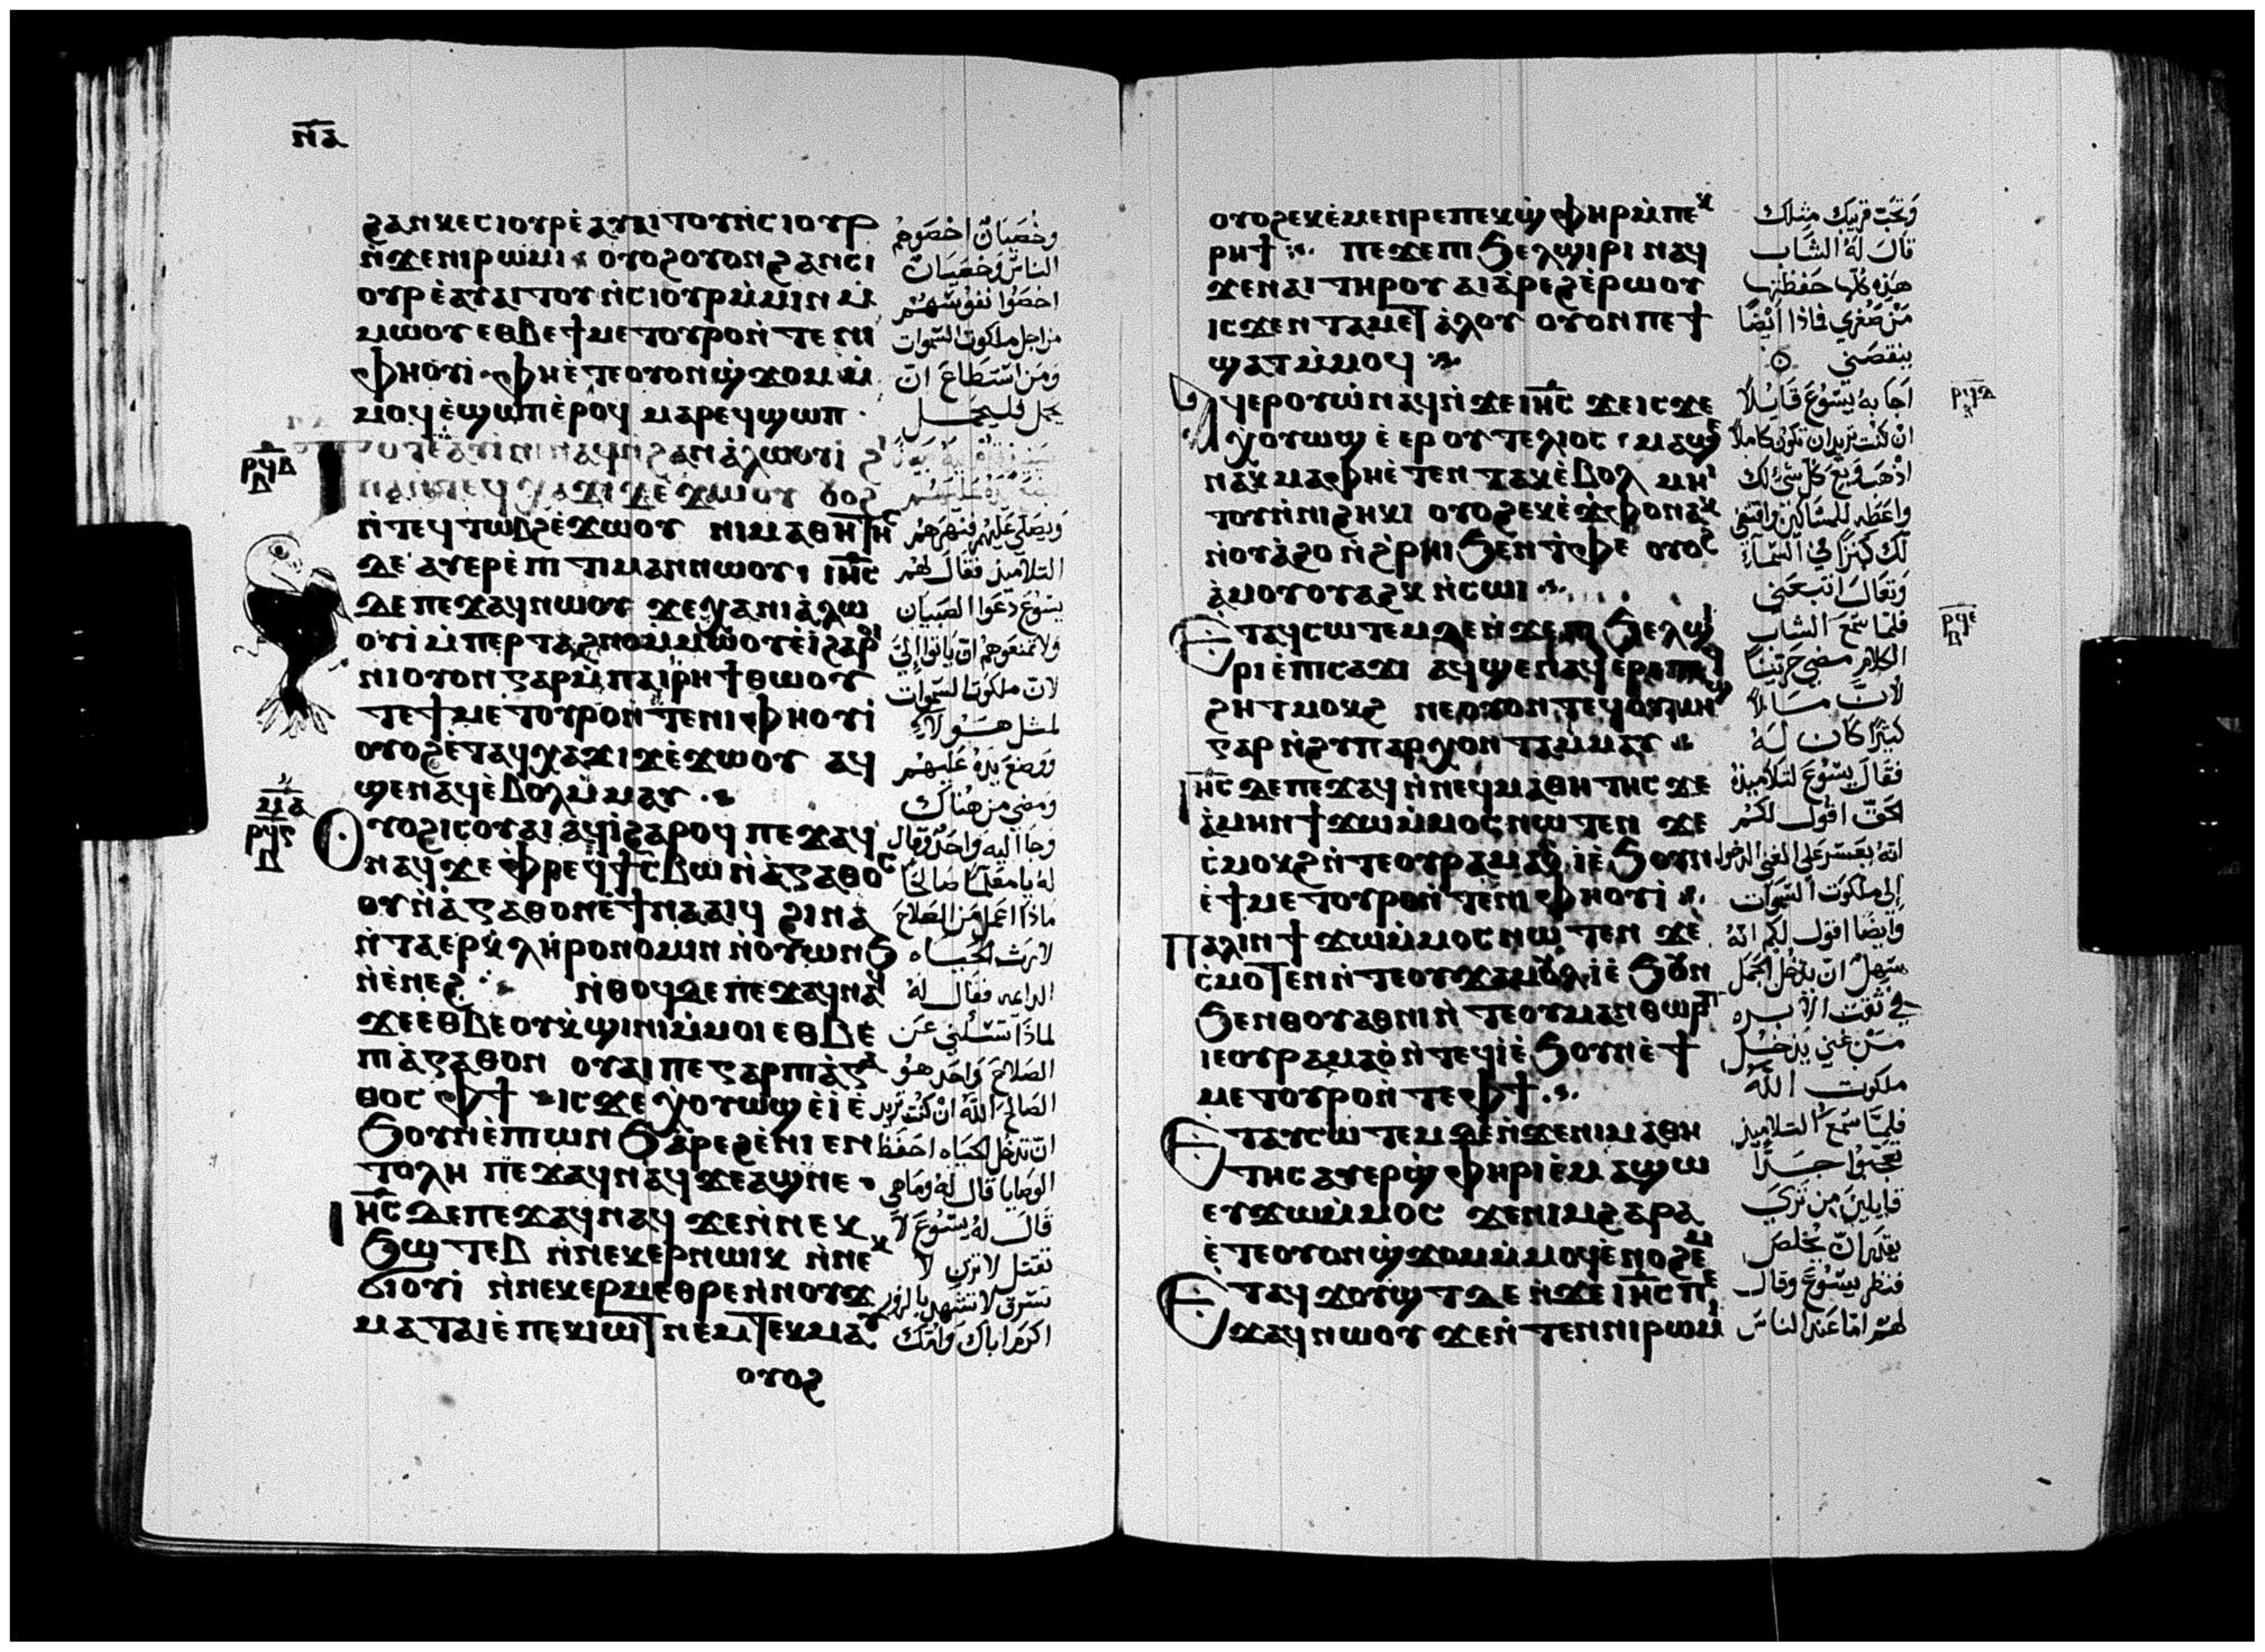 ⲛ̅ⲁ̅
ϩⲁⲛⲕⲉⲥⲓⲟⲩⲣ ⲉ̀ⲁⲩⲁⲓⲧⲟⲩ ⲛ̀ⲥⲓⲟⲩⲣ
ⲛ̀ϫⲉⲛⲓⲣⲱⲙⲓ ⲟⲩⲟϩ ⲟⲩⲟⲛ ϩⲁⲛⲥⲓ
ⲟⲩⲣ ⲉ̀ⲁⲩⲁⲓⲧⲟⲩ ⲛ̀ⲥⲓⲟⲩⲣ ⲙ̀ⲙⲓⲛ ⲙ̀
ⲙⲱⲟⲩ ⲉⲑⲃⲉ ϯⲙⲉⲧⲟⲩⲣⲟ ⲛ̀ⲧⲉ ⲛⲓ
ⲫⲏⲟⲩⲓ̀ ⲫⲏ ⲉ̀ⲧⲉ ⲟⲩⲟⲛ ϣ̀ϫⲟⲙ ⲙ̀
ⲙⲟϥ ⲉ̀ϣⲱⲡ ⲉ̀ⲣⲟϥ ⲙⲁⲣⲉϥϣⲱⲡ ·
ⲣ̅ϥ̅ⲃ̅
ⲃ
ⲧⲟⲧⲉ ⲁⲩⲓ̀ⲛⲓ ⲛⲁϥ ⲛ̀ϩⲁⲛⲁ̀ⲗⲱⲟⲩⲓ̀ ϩⲓ
ⲛⲁ ⲛ̀ⲧⲉϥⲭⲁϫⲓϫ ⲉ̀ϫⲱⲟⲩ ⲟⲩⲟϩ
ⲛ̀ⲧⲉϥⲧⲱⲃϩ ⲉ̀ϫⲱⲟⲩ ⲛⲓⲙⲁⲑⲏⲧⲏⲥ
ⲇⲉ ⲁⲩⲉⲣⲉ̀ⲡⲓⲧⲓⲙⲁⲛ ⲛⲱⲟⲩ ⲓⲏ̅ⲥ̅
ⲇⲉ ⲡⲉϫⲁϥ ⲛⲱⲟⲩ ϫⲉ ⲭⲁ ⲛⲓⲁ̀ⲗⲱ
ⲟⲩⲓ̀ ⲙ̀ⲡⲉⲣⲧⲁϩⲛⲟ ⲙ̀ⲙⲱⲟⲩ ⲉ̀ⲓ̀ ϩⲁⲣⲟⲓ
ⲛⲓⲟⲩⲟⲛ ⲅⲁⲣ ⲙ̀ⲡⲁⲓⲣⲏϯ ⲑⲱⲟⲩ
ⲧⲉ ϯⲙⲉⲧⲟⲩⲣⲟ ⲛ̀ⲧⲉ ⲛⲓⲫⲏⲟⲩⲓ̀
ⲟⲩⲟϩ ⲉ̀ⲧⲁϥⲭⲁϫⲓϫ ⲉ̀ϫⲱⲟⲩ ⲁϥ
ϣⲉⲛⲁϥ ⲉ̀ⲃⲟⲗ ⲙ̀ⲙⲁⲩ
ⲙ̅ⲁ̅
ⲣ̅ϥ̅ⲅ̅
ⲃ
ⲟⲩⲟϩ ⲓⲥ ⲟⲩⲁⲓ ⲁϥⲓ̀ ϩⲁⲣⲟϥ ⲡⲉϫⲁϥ
ⲛⲁϥ ϫⲉ ⲫ̀ⲣⲉϥϯⲥ̀ⲃⲱ ⲛ̀ⲁ̀ⲅⲁⲑⲟⲥ
ⲟⲩ ⲛ̀ⲁ̀ⲅⲁⲑⲟⲛ ⲉ̀ϯⲛⲁⲁⲓϥ ϩⲓⲛⲁ
ⲛ̀ⲧⲁⲉⲣⲕ̀ⲗⲏⲣⲟⲛⲟⲙⲓⲛ ⲛ̀ⲟⲩⲱⲛϧ
ⲛ̀ⲉ̀ⲛⲉϩ ⲛ̀ⲑⲟϥ ⲇⲉ ⲡⲉϫⲁϥ ⲛⲁϥ
ϫⲉ ⲉⲑⲃⲉ ⲟⲩ ⲕ̀ϣⲓⲛⲓ ⲙ̀ⲙⲟⲓ ⲉⲑⲃⲉ
ⲡⲓⲁ̀ⲅⲁⲑⲟⲛ ⲟⲩⲁⲓ ⲡⲉ ⲅⲁⲣ ⲡⲓⲁ̀ⲅⲁ
ⲑⲟⲥ ⲫϯ ⲓⲥϫⲉ ⲭⲟⲩⲱϣ ⲉ̀ⲓ̀ ⲉ̀
ϧⲟⲩⲛ ⲉ̀ⲡⲓⲱⲛϧ ⲁ̀ⲣⲉϩ ⲉ̀ⲛⲓⲉⲛ
ⲧⲟⲗⲏ ⲡⲉϫⲁϥ ⲛⲁϥ ϫⲉ ⲁϣ ⲛⲉ
ⲓⲏ̅ⲥ̅ ⲇⲉ ⲡⲉϫⲁϥ ⲛⲁϥ ϫⲉ ⲛ̀ⲛⲉⲕ
ϧⲱⲧⲉⲃ ⲛ̀ⲛⲉⲕⲉⲣⲛⲱⲓⲕ ⲛ̀ⲛⲉⲕ
ϭⲓⲟⲩⲓ̀ ⲛ̀ⲛⲉⲕⲉⲣⲙⲉⲑⲣⲉ ⲛ̀ⲛⲟⲩϫ
ⲙⲁⲧⲁⲓⲉ̀ ⲡⲉⲕⲓⲱⲧ ⲛⲉⲙ ⲧⲉⲕⲙⲁⲩ
ⲟⲩⲟϩ
وخصيان اخصوهم
الناس وخصيان
اخصوا نفوسهم
من اجل ملكوت السموات
ومن استطاع ان
يحمل فليحمل
ويصلي عليهم فنهرهم
التلاميذ فقال لهم
يسوع دعوا الصبيان
ولا تمنعوهم ان ياتوا الي
لان ملكوت السموات
لمثل هولاء
ووضع يده عليهم
ومضى من هناك
وجا اليه واحد وقال
له يا معلما صالحا
ماذا اعمل من الصلاح
لارث الحياه
الدايمه فقال له
لماذا تسئلني عن
الصلاح واحد هو
الصالح الله ان كنت تريد
ان تدخل الحياه احفظ
الوصايا قال له وما هي
قال له يسوع لا
تقتل لا تزني لا
تسرق لا تشهد بالزور
اكرم اباك وامك
ⲟⲩⲟϩ ⲉⲕⲉ̀ⲙⲉⲛⲣⲉ ⲡⲉⲕϣ̀ⲫⲏⲣ ⲙ̀ⲡⲉⲕ
ⲣⲏϯ ⲡⲉϫⲉ ⲡⲓϧⲉⲗϣⲓⲣⲓ ⲛⲁϥ
ϫⲉ ⲛⲁⲓ ⲧⲏⲣⲟⲩ ⲁⲓⲁ̀ⲣⲉϩ ⲉ̀ⲣⲱⲟⲩ
ⲓⲥϫⲉⲛ ⲧⲁⲙⲉⲧⲁ̀ⲗⲟⲩ ⲟⲩ ⲟⲛ ⲡⲉϯ
ϣⲁⲧ ⲙ̀ⲙⲟϥ
ⲁϥⲉⲣⲟⲩⲱ̀ ⲛⲁϥ ⲛ̀ϫⲉ ⲓⲏ̅ⲥ̅ ϫⲉ ⲓⲥϫⲉ
ⲭⲟⲩⲱϣ ⲉ̀ⲉⲣ ⲟⲩⲧⲉⲗⲓⲟⲥ ⲙⲁϣⲉ
ⲛⲁⲕ ⲙⲁ ⲫⲏ ⲉ̀ⲧⲉⲛⲧⲁⲕ ⲉ̀ⲃⲟⲗ ⲙⲏⲓ
ⲧⲟⲩ ⲛ̀ⲛⲓϩⲏⲕⲓ ⲟⲩⲟϩ ⲉⲕⲉ̀ϫⲫⲟ ⲛⲁⲕ
ⲛ̀ⲟⲩⲁ̀ϩⲟ ⲛ̀ϩ̀ⲣⲏⲓ ϧⲉⲛ ⲧ̀ⲫⲉ ⲟⲩⲟϩ
ⲁ̀ⲙⲟⲩ ⲟⲩⲁϩⲕ ⲛ̀ⲥⲱⲓ
ⲉⲧⲁϥⲥⲱⲧⲉⲙ ⲇⲉ ⲛ̀ϫⲉ ⲡⲓϧⲉⲗϣⲓ
ⲣⲓ ⲉ̀ⲡⲓⲥⲁϫⲓ ⲁϥϣⲉⲛⲁϥ ⲉⲣⲉ ⲡⲉϥ
ϩⲏⲧ ⲙⲟⲕϩ ⲛⲉ ⲟⲩⲟⲛ ⲧⲉϥ ⲟⲩⲙⲏϣ
ⲅⲁⲣ ⲛ̀ϩⲩⲡⲁⲣⲭⲟⲛⲧⲁ ⲙ̀ⲙⲁⲩ
ⲓⲏ̅ⲥ̅ ⲇⲉ ⲡⲉϫⲁϥ ⲛ̀ⲛⲉϥⲙⲁⲑⲏⲧⲏⲥ ϫⲉ
ⲁ̀ⲙⲏⲛ ϯϫⲱ ⲙ̀ⲙⲟⲥ ⲛⲱⲧⲉⲛ ϫⲉ
ⲥ̀ⲙⲟⲕϩ ⲛ̀ⲧⲉ ⲟⲩⲣⲁⲙⲁⲟ̀ ⲓ̀ ⲉ̀ϧⲟⲩⲛ
ⲉ̀ϯⲙⲉⲧⲟⲩⲣⲟ ⲛ̀ⲧⲉ ⲛⲓⲫⲏⲟⲩⲓ̀
ⲡⲁⲗⲓⲛ ϯϫⲱ ⲙ̀ⲙⲟⲥ ⲛⲱⲧⲉⲛ ϫⲉ
ⲥ̀ⲙⲟⲧⲉⲛ ⲛ̀ⲧⲉ ⲟⲩϫⲁⲙⲟⲩⲗ ⲓ̀ ⲉ̀ϧⲟⲩⲛ
ϧⲉⲛ ⲑⲟⲩⲁⲑⲛⲓ ⲛ̀ⲧⲉ ⲟⲩⲙⲁⲛⲑⲱⲣⲡ
ⲓⲉ ⲟⲩⲣⲁⲙⲁⲟ̀ ⲛ̀ⲧⲉϥⲓ̀ ⲉ̀ϧⲟⲩⲛ ⲉ̀ϯ
ⲙⲉⲧⲟⲩⲣⲟ ⲛ̀ⲧⲉ ⲫϯ
ⲉⲧⲁⲩⲥⲱⲧⲉⲙ ⲇⲉ ⲛ̀ϫⲉ ⲛⲓⲙⲁⲑⲏ
ⲧⲏⲥ ⲁⲩⲉⲣϣ̀ⲫⲏⲣⲓ ⲉ̀ⲙⲁϣⲱ
ⲉⲩϫⲱ ⲙ̀ⲙⲟⲥ ϫⲉ ⲛⲓⲙ ϩⲁⲣⲁ
ⲉ̀ⲧⲉ ⲟⲩⲟⲛ ϣ̀ϫⲟⲙ ⲙ̀ⲙⲟϥ ⲉ̀ⲛⲟϩⲉⲙ
ⲉⲧⲁϥϫⲟⲩϣⲧ ⲇⲉ ⲛ̀ϫⲉ ⲓⲏ̅ⲥ̅ ⲡⲉ
ϫⲁϥ ⲛⲱⲟⲩ ϫⲉ ⲛ̀ⲧⲉⲛ ⲛⲓⲣⲱⲙⲓ
وتحب قريبك مثلك
قال له الشاب
هذه كلها حفظتها
من صغري فاذا ايضا
ينقصني
اجابه يسوع قايلا
ان كنت تريد ان تكون كاملا
اذهب وبع كل شي لك
واعطه للمساكين واقتني
لك كنزا في السماء
وتعال اتبعني
فلما سمع الشاب
الكلام مضى حزينا
لان مالا
كثيرا كان له
فقال يسوع لتلاميذه
الحق اقول لكم
انه يعسر على الغني الدخول
الى ملكوت السموات
وايضا اقول لكم انه
سهل ان يدخل الجمل
في ثقب الابره
من غني يدخل
ملكوت الله
فلما سمع التلاميذ
تعجبوا جدا
قايلين من ترى
يقدر ان يخلص
فنظر يسوع وقال
لهم اما عند الناس
ⲣ̅ϥ̅ⲇ̅
ⲃ
ⲣ̅ϥ̅ⲉ̅
ⲃ